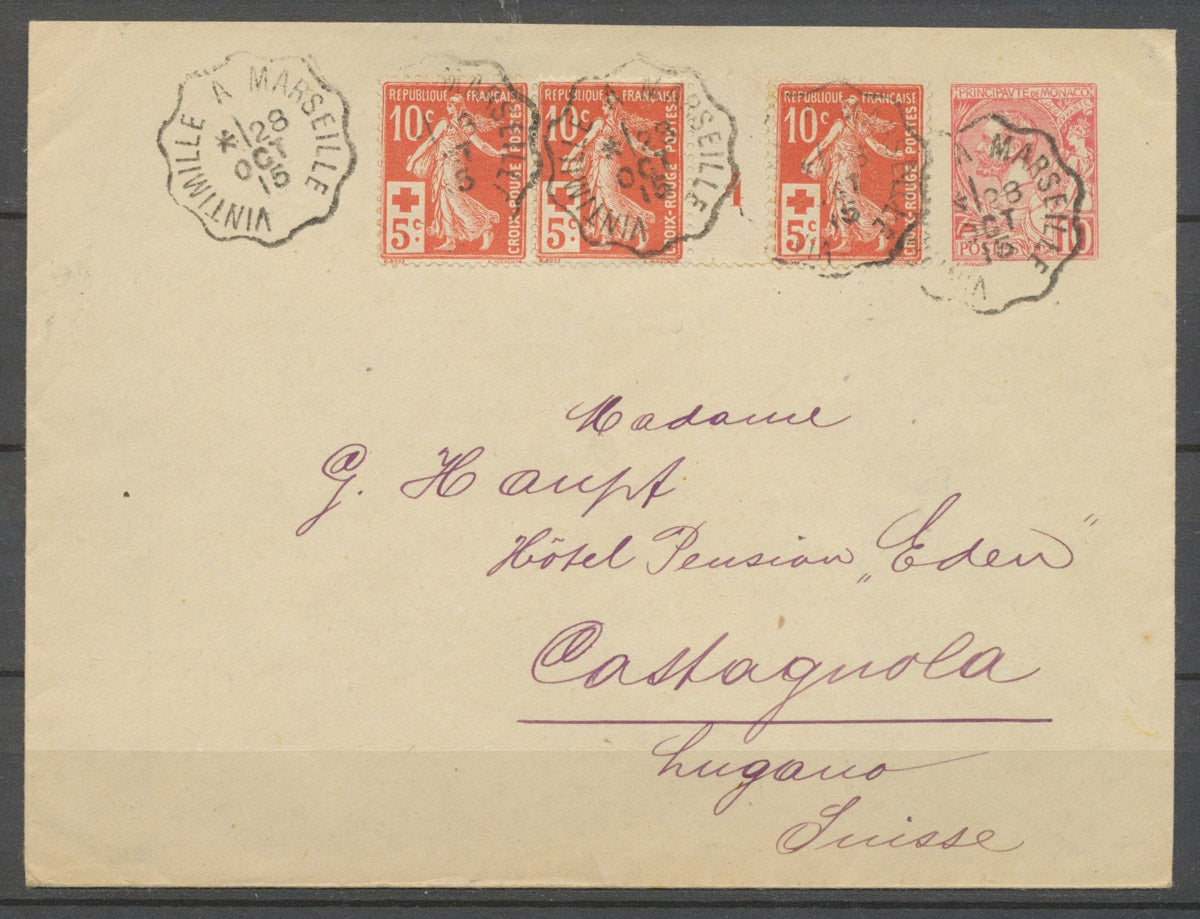 VINTIMILLE A MARSEILLE
* 28
OCT
15
REPUBLIQUE FRANÇAISE
10c
5c
CROIX-ROUGE POSTES
REPUBLIQUE FRANÇAISE
10c
5c
CROIX-ROUGE POSTES
VINTIMILLE A MARSEILLE
* 28
OCT
15
REPUBLIQUE FRANÇAISE
10c
5c
CROIX-ROUGE POSTES
PRINCIPAVTE DE MONACO
POSTES
10
A MARSEILLE
28
OCT
15
Madame
G. Haupt
Hôtel Pension „Eden“
Castagnola
Lugano
Suisse